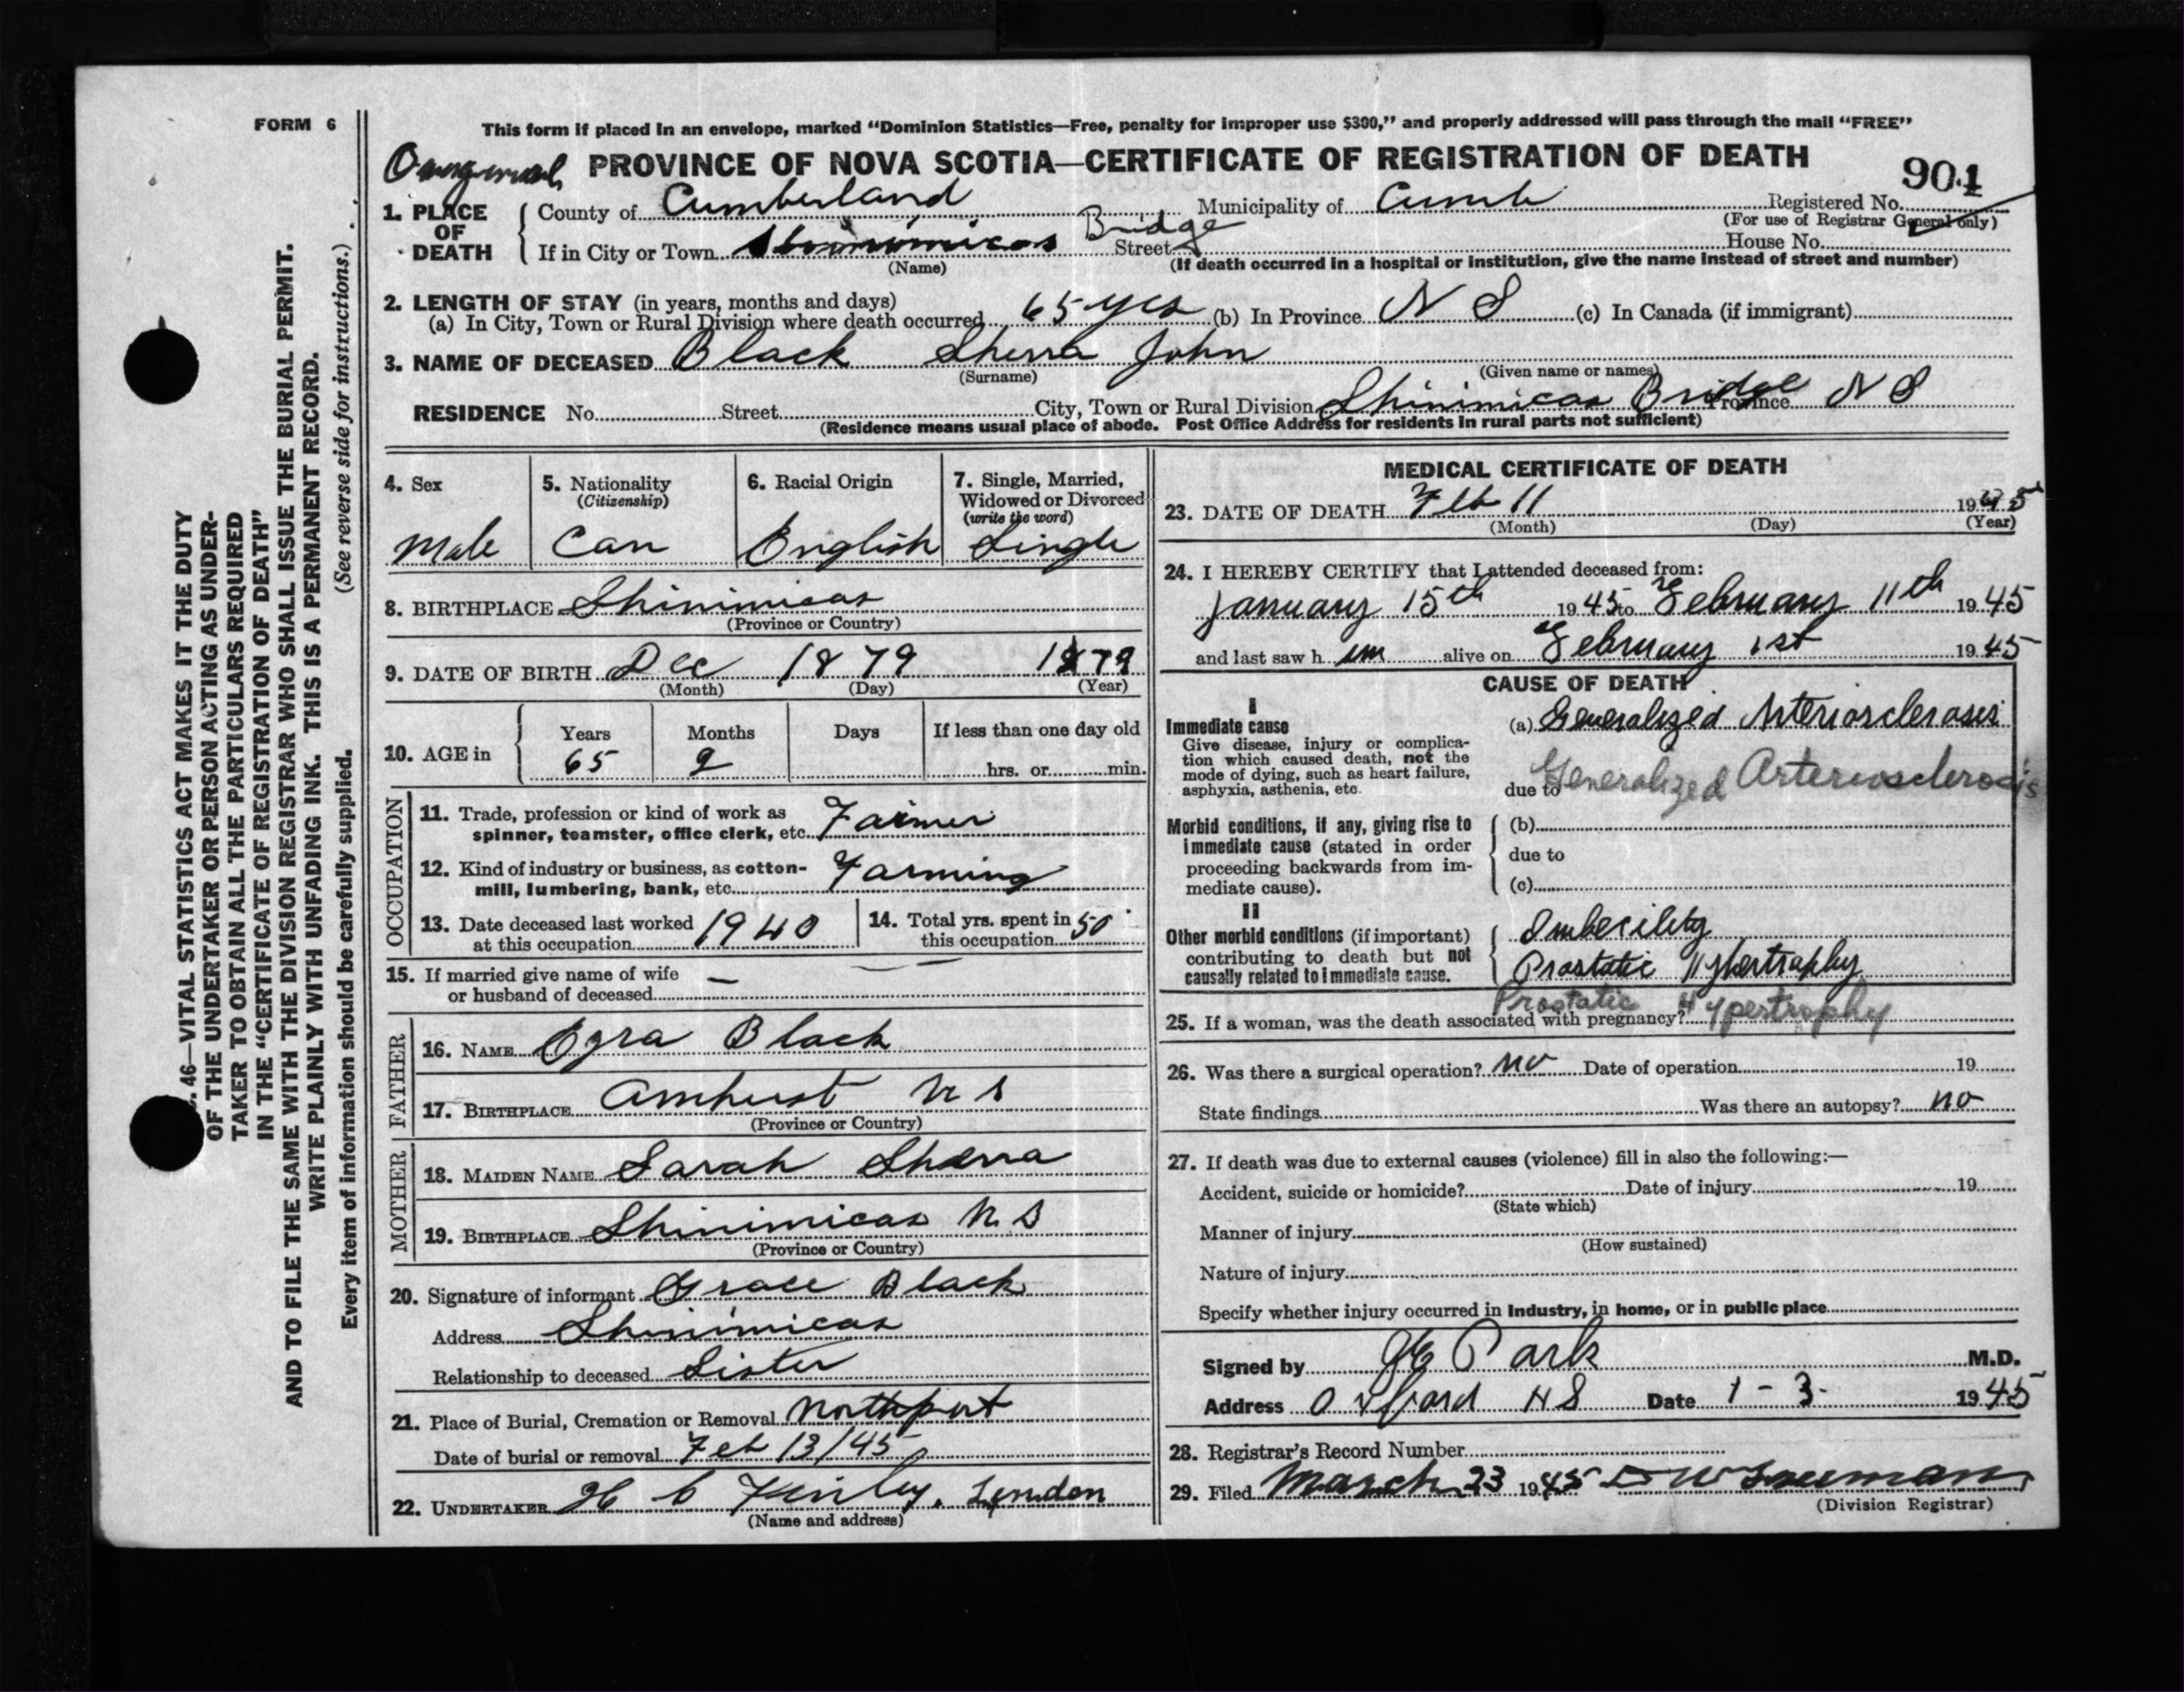 FORM 6
This form if placed in an envelope, marked “Dominion Statistics—Free, penalty for improper use $300,” and properly addressed will pass through the mail “FREE”
PROVINCE OF NOVA SCOTIA—CERTIFICATE OF REGISTRATION OF DEATH
904
1. PLACE OF DEATH
County of Cumberland Municipality of Cumb Registered No.
(For use of Registrar General only)
If in City or Town Shinimicas Bridge Street House No.
(Name) (If death occurred in a hospital or institution, give the name instead of street and number)
2. LENGTH OF STAY (in years, months and days)
(a) In City, Town or Rural Division where death occurred 65 yrs (b) In Province N S (c) In Canada (if immigrant)
3. NAME OF DECEASED Black John
(Surname) (Given name or names)
RESIDENCE No. Street City, Town or Rural Division Shinimicas Bridge Province N S
(Residence means usual place of abode. Post Office Address for residents in rural parts not sufficient)
4. Sex
Male
5. Nationality
(Citizenship)
Can
6. Racial Origin
English
7. Single, Married,
Widowed or Divorced
(write the word)
Single
8. BIRTHPLACE Shinimicas
(Province or Country)
9. DATE OF BIRTH Dec 1879 1879
(Month) (Day) (Year)
10. AGE in
Years Months Days If less than one day old
65 2 hrs. or min.
OCCUPATION
11. Trade, profession or kind of work as
spinner, teamster, office clerk, etc. Farmer
12. Kind of industry or business, as cotton-
mill, lumbering, bank, etc. Farming
13. Date deceased last worked
at this occupation 1940
14. Total yrs. spent in
this occupation 50
15. If married give name of wife —
or husband of deceased
FATHER
16. NAME Ezra Black
17. BIRTHPLACE Amherst N S
(Province or Country)
MOTHER
18. MAIDEN NAME Sarah
19. BIRTHPLACE Shinimicas N S
(Province or Country)
20. Signature of informant Grace Black
Address Shinimicas
Relationship to deceased Sister
21. Place of Burial, Cremation or Removal Northport
Date of burial or removal Feb 13/45
22. UNDERTAKER
(Name and address)
MEDICAL CERTIFICATE OF DEATH
23. DATE OF DEATH Feb 11 1945
(Month) (Day) (Year)
24. I HEREBY CERTIFY that I attended deceased from:
January 15th 1945 to February 11th 1945
and last saw h im alive on February 1st 1945
CAUSE OF DEATH
I
Immediate cause
Give disease, injury or complica-
tion which caused death, not the
mode of dying, such as heart failure,
asphyxia, asthenia, etc.
(a) Generalized Arteriosclerosis
due to Generalized Arteriosclerosis
Morbid conditions, if any, giving rise to
immediate cause (stated in order
proceeding backwards from im-
mediate cause).
(b)
due to
(c)
II
Other morbid conditions (if important)
contributing to death but not
causally related to immediate cause.
Imbecility
Prostatic Hypertrophy
Prostatic Hypertrophy
25. If a woman, was the death associated with pregnancy?
26. Was there a surgical operation? no Date of operation 19
State findings Was there an autopsy? no
27. If death was due to external causes (violence) fill in also the following:—
Accident, suicide or homicide? Date of injury 19
(State which)
Manner of injury
(How sustained)
Nature of injury
Specify whether injury occurred in Industry, in home, or in public place
Signed by Park M.D.
Address Oxford N S Date 1 - 3 - 1945
28. Registrar's Record Number
29. Filed March 23 1945
(Division Registrar)
46—VITAL STATISTICS ACT MAKES IT THE DUTY
OF THE UNDERTAKER OR PERSON ACTING AS UNDER-
TAKER TO OBTAIN ALL THE PARTICULARS REQUIRED
IN THE “CERTIFICATE OF REGISTRATION OF DEATH”
AND TO FILE THE SAME WITH THE DIVISION REGISTRAR WHO SHALL ISSUE THE BURIAL PERMIT.
WRITE PLAINLY WITH UNFADING INK. THIS IS A PERMANENT RECORD.
Every item of information should be carefully supplied. (See reverse side for instructions.)